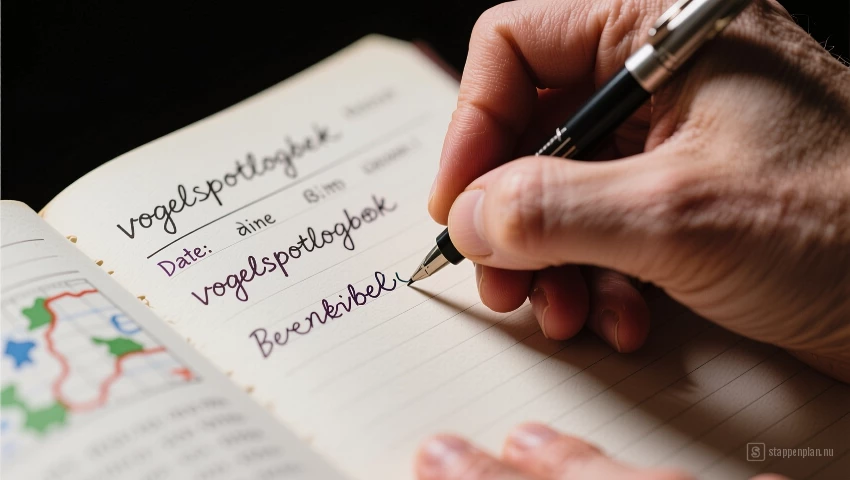 vogelspotlogbek
Date: aine Bim
vogelspotlogbok
Berenkibel
stappenplan.nu